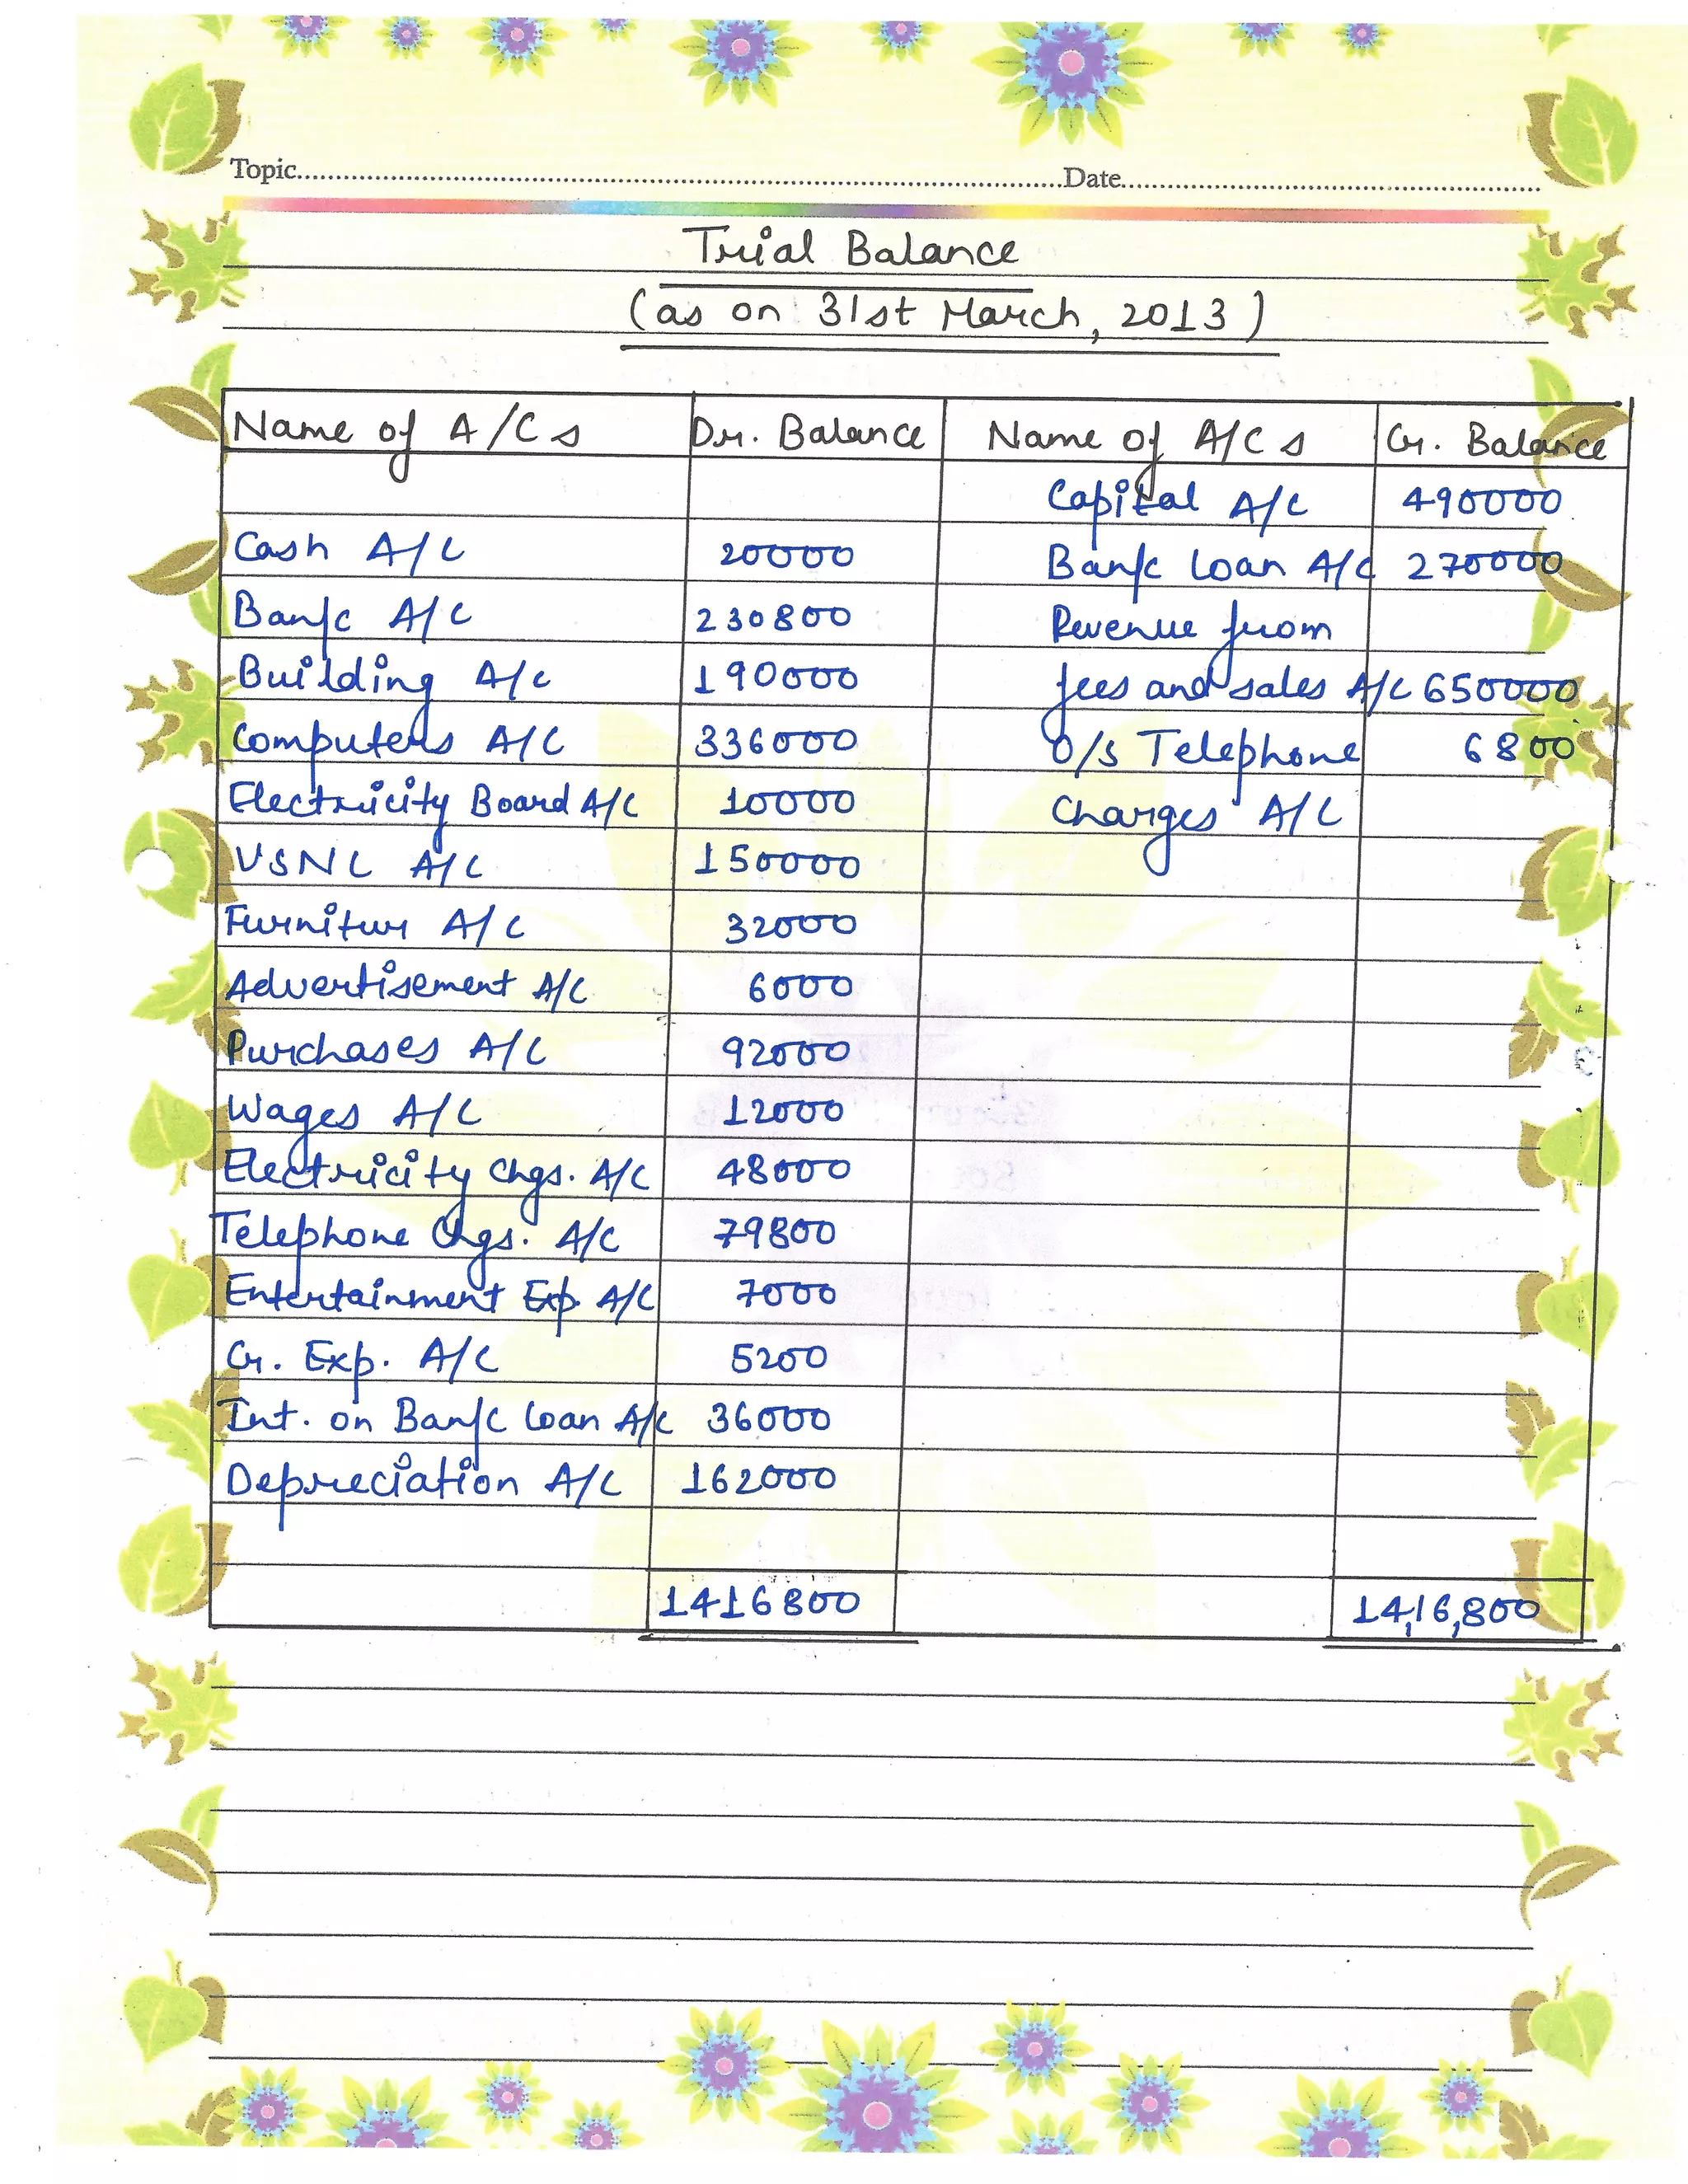 Topic........Date........
Trial Balance
(as on 31st March, 2013)
Name of A/Cs Dr. Balance Name of A/Cs Cr. Balance
Capital A/C 490000
Cash A/C 20000 Bank Loan A/C 270000
Bank A/C 230800 Revenue from
Building A/c 190000 fees and sales A/C 650000
Computers A/C 336000 O/s Telephone 6800
Electricity Board A/C 10000 Charges A/C
VSNL A/C 150000
Furnitur A/C 32000
Advertisement A/C 6000
Purchases A/C 92000
Wages A/C 12000
Electricity Chgs. A/C 48000
Telephone Chgs. A/C 79800
Entertainment Exp A/C 7000
Gr. Exp. A/C 5200
Int. on Bank Loan A/c 36000
Depreciation A/C 162000
1416800 14,16,800